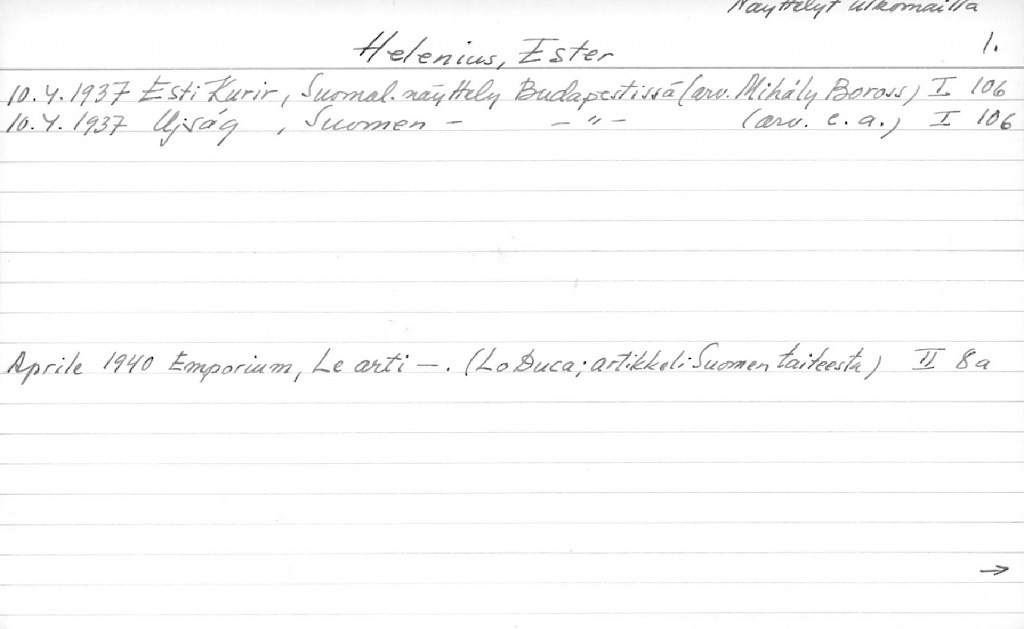 Näyttelyt ulkomailla
Helenius, Ester 1.
10.4.1937 Esti Kurir, Suomal. näyttely Budapestissä (arv. Mihály Boross) I 106
10.4.1937 Ujság, Suomen - - " - (arv. e. a.) I 106
Aprile 1940 Emporium, Le arti -. (Lo Duca; artikkeli Suomen taiteesta) II 8a
→